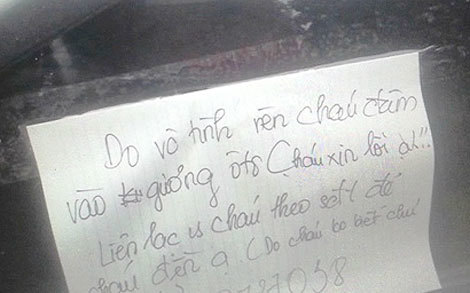 Do vô tình nên cháu đâm
vào gương ôtô (cháu xin lỗi ạ!!
Liên lạc vs cháu theo sđt để
cháu đền ạ. (Do cháu ko biết chú
37038